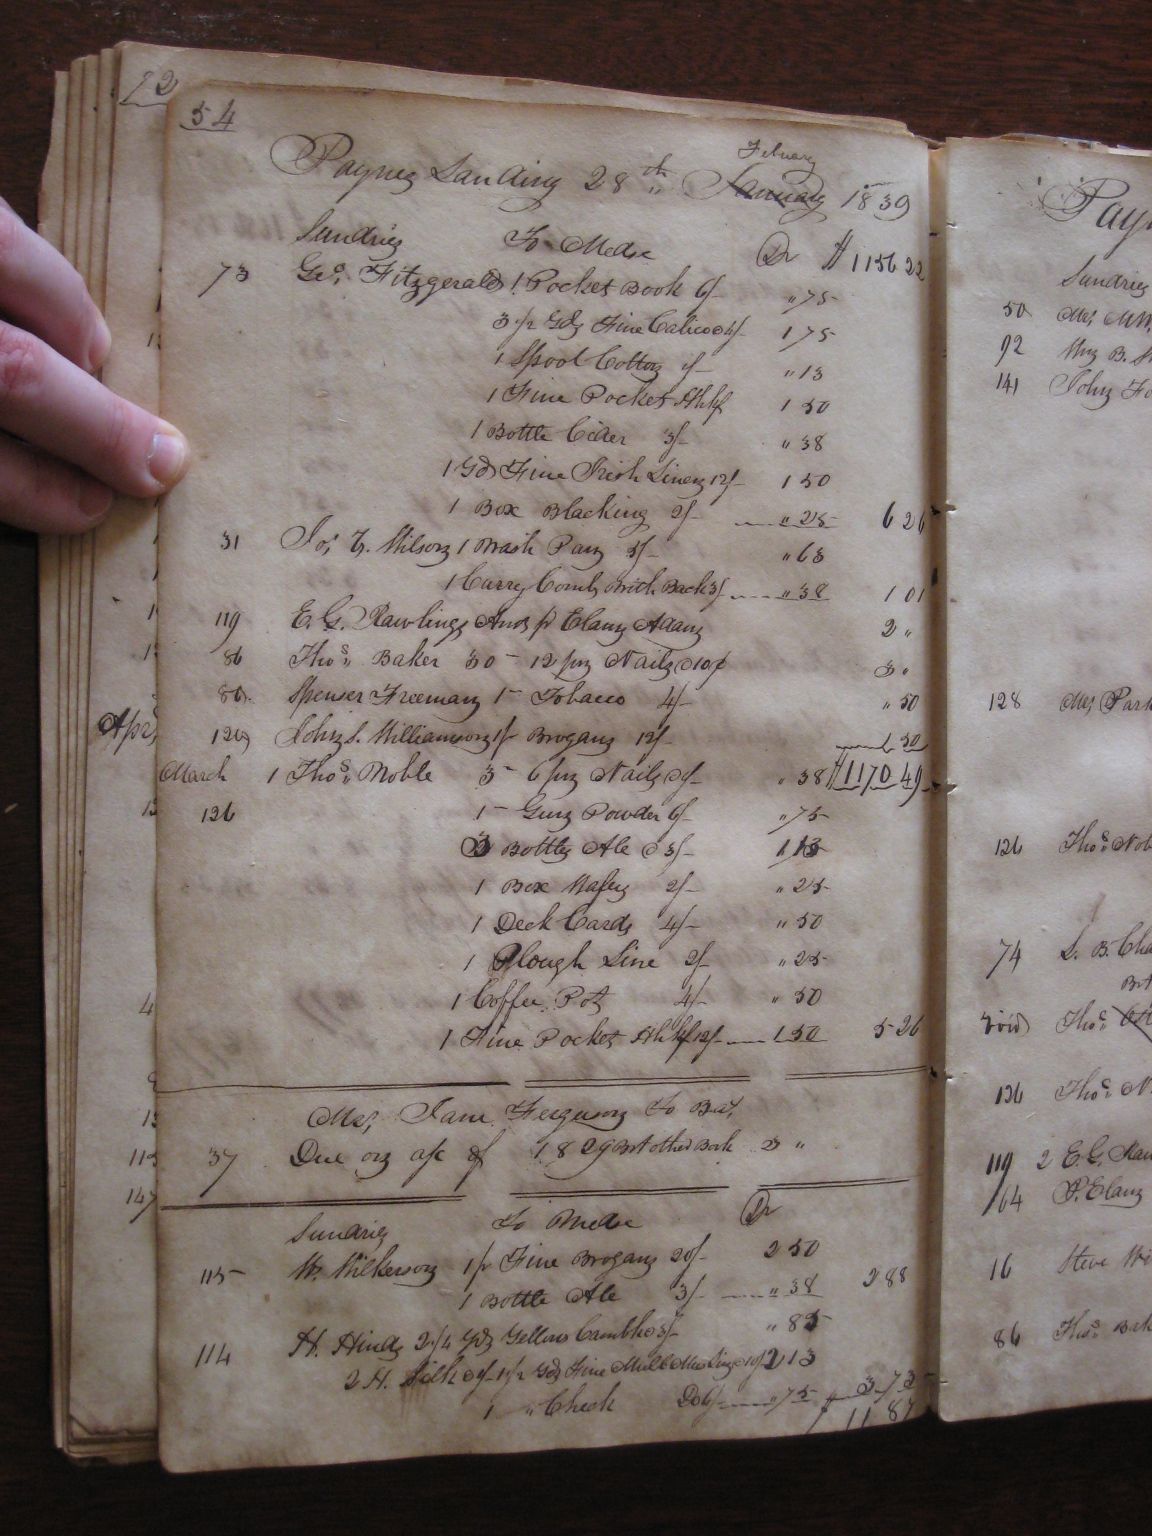 72
54
Paynes Landing 28th February January 1839
Sundries To Mdse Dr $1156 22
73 Geo, Fitzgerald 1 Pocket Book 6/- " 75
3 1/2 Yds Fine Calico @ 4/- 1 75
1 Spool Cotton 1/- " 13
1 Fine Pocket Hhkf 1 50
1 Bottle Cider 3/- " 38
1 Yd Fine Irish Linen 12/- 1 50
1 Box Blacking 2/- " 25 6 26
31 Jo, Wilson 1 Wash Pan 5/- " 63
1 Curry Comb With Back 3/- " 38 1 01
119 E. G. Rawlings And pr Elam Adam 2 "
86 Thos, Baker 30 - 12 pny Nails @ 10¢ 3 "
80 Spenser Freeman 1 - Tobacco 4/- " 50
129 John S. Williamson 1 pr Brogans 12/- 1 50
March 1 Thos, Noble 3 - 6 pny Nails @ 1/- " 38 $1170 49
126 1 - Gun Powder 6/- " 75
3 Bottles Ale @ 3/- 1 13
1 Box Wafers 2/- " 25
1 Deck Cards 4/- " 50
1 Plough Line 2/- " 25
1 Coffee Pot 4/- " 50
1 Fine Pocket Hhkf 12/- 1 50 5 26
Mrs, Jane Ferguson To
37 Due on a/c of 1829 other Book 3 "
Sundries To Mdse Dr
115 W. Wilkerson 1 pr Fine Brogans 20/- 2 50
1 Bottle Ale 3/- " 38 2 88
114 H. Hinds 2 3/4 Yds Yellow @ 3/- " 85
2 H. Silk @ 1/- 1 1/2 Yds Fine Mull Muslin @ 10/- 2 13
1 " Check Do 6/- " 75 3 73
11 87
Apr
113
147
Sundries
50 Mrs,
92 B.
141 John
128 Mrs, Park
126 Thos, Nob
74 S. B. Cha
Void Thos,
126 Thos, N
119 2 E. G. Raw
164 P. Elam
16 Steve Wi
86 Thos, Bak